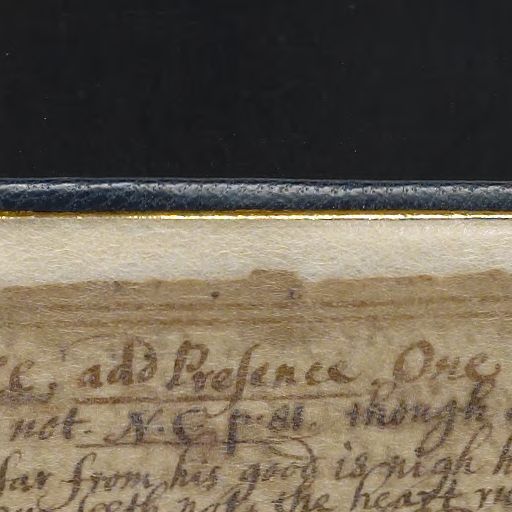 add Presence. One
not. N.C. p. 81. though
far from his good is nigh
not the heart